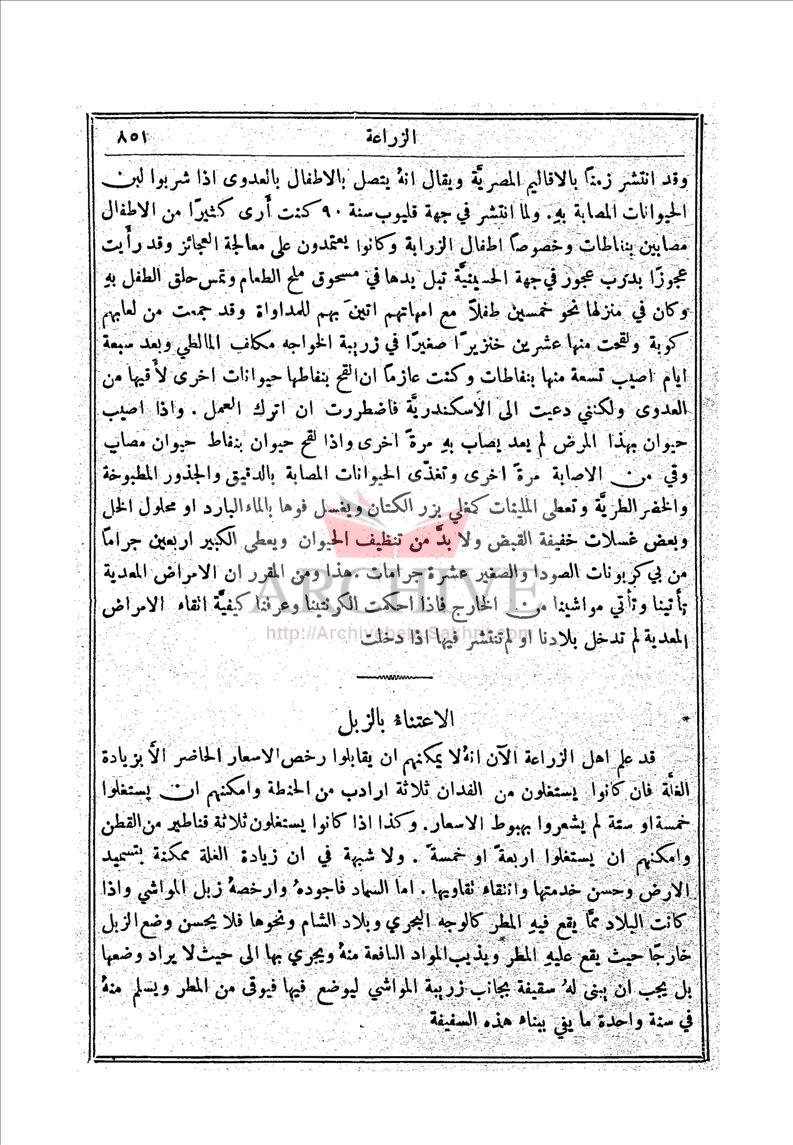 الزراعة
٨٥١
وقد انتشر زمنًا بالاقاليم المصريَّة ويقال انهُ يتصل بالاطفال بالعدوى اذا شربوا لبن
الحيوانات المصابة بهِ. ولما انتشر في جهة قليوب سنة ٩٠ كنت أرى كثيرًا من الاطفال
مصابين بنفاطات وخصوصًا اطفال الزرابة وكانوا يعتمدون على معالجة العجائز وقد رأيت
عجوزًا بدرب عجور في جهة الحسينيَّة تبل يدها في مسحوق ملح الطعام وتمس حلق الطفل بهِ
وكان في منزلها نحو خمسين طفلًا مع امهاتهم اتينَ بهم للمداواة وقد جمعت من لعابهم
كوبة ولقحت منها عشرين خنزيرًا صغيرًا في زريبة الخواجه مكاف المالطي وبعد سبعة
ايام اصيب تسعة منها بنفاطات وكنت عازمًا ان القح بنفاطها حيوانات اخرى لأقيها من
العدوى ولكنني دعيت الى الاسكندريَّة فاضطررت ان اترك العمل. واذا اصيب
حيوان بهذا المرض لم يعد يصاب بهِ مرةً اخرى واذا لقح حيوان بنفاط حيوان مصاب
وقي من الاصابة مرةً اخرى وتغذَّى الحيوانات المصابة بالدقيق والجذور المطبوخة
والخضر الطريَّة وتعطى الملينات كمغلي بزر الكتان ويغسل فوها بالماء البارد او محلول الخل
وبعض غسلات خفيفة القبض ولا بدَّ من تنظيف الحيوان ويعطى الكبير اربعين جرامًا
من بي كربونات الصودا والصغير عشرة جرامات. هذا ومن المقرر ان الامراض المعدية
تأتينا وتأتي مواشينا من الخارج فاذا احكمت الكرنتينا وعرفنا كيفيَّة اتقاء الامراض
المعدية لم تدخل بلادنا او لم تنتشر فيها اذا دخلت
ARCHIVE
http://Archivebeta.Sakhrit.com
الاعتناء بالزبل
قد علم اهل الزراعة الآن انهُ لا يمكنهم ان يقابلوا رخص الاسعار الحاضر الاَّ بزيادة
الغلَّة فان كانوا يستغلون من الفدان ثلاثة ارادب من الحنطة وامكنهم ان يستغلوا
خمسة او ستة لم يشعروا بهبوط الاسعار. وكذا اذا كانوا يستغلون ثلاثة قناطير من القطن
وامكنهم ان يستغلوا اربعةً او خمسةً. ولا شبهة في ان زيادة الغلة ممكنة بتسميد
الارض وحسن خدمتها وانتقاء تقاويها. اما السماد فاجودهُ وارخصهُ زبل المواشي واذا
كانت البلاد ممَّا يقع فيهِ المطر كالوجه البحري وبلاد الشام ونحوها فلا يحسن وضع الزبل
خارجًا حيث يقع عليهِ المطر ويذيب المواد النافعة منهُ ويجري بها الى حيث لا يراد وضعها
بل يجب ان يبنى لهُ سقيفة بجانب زريبة المواشي ليوضع فيها فيوقى من المطر ويسلم منهُ
في سنة واحدة ما يفي ببناء هذه السقيفة